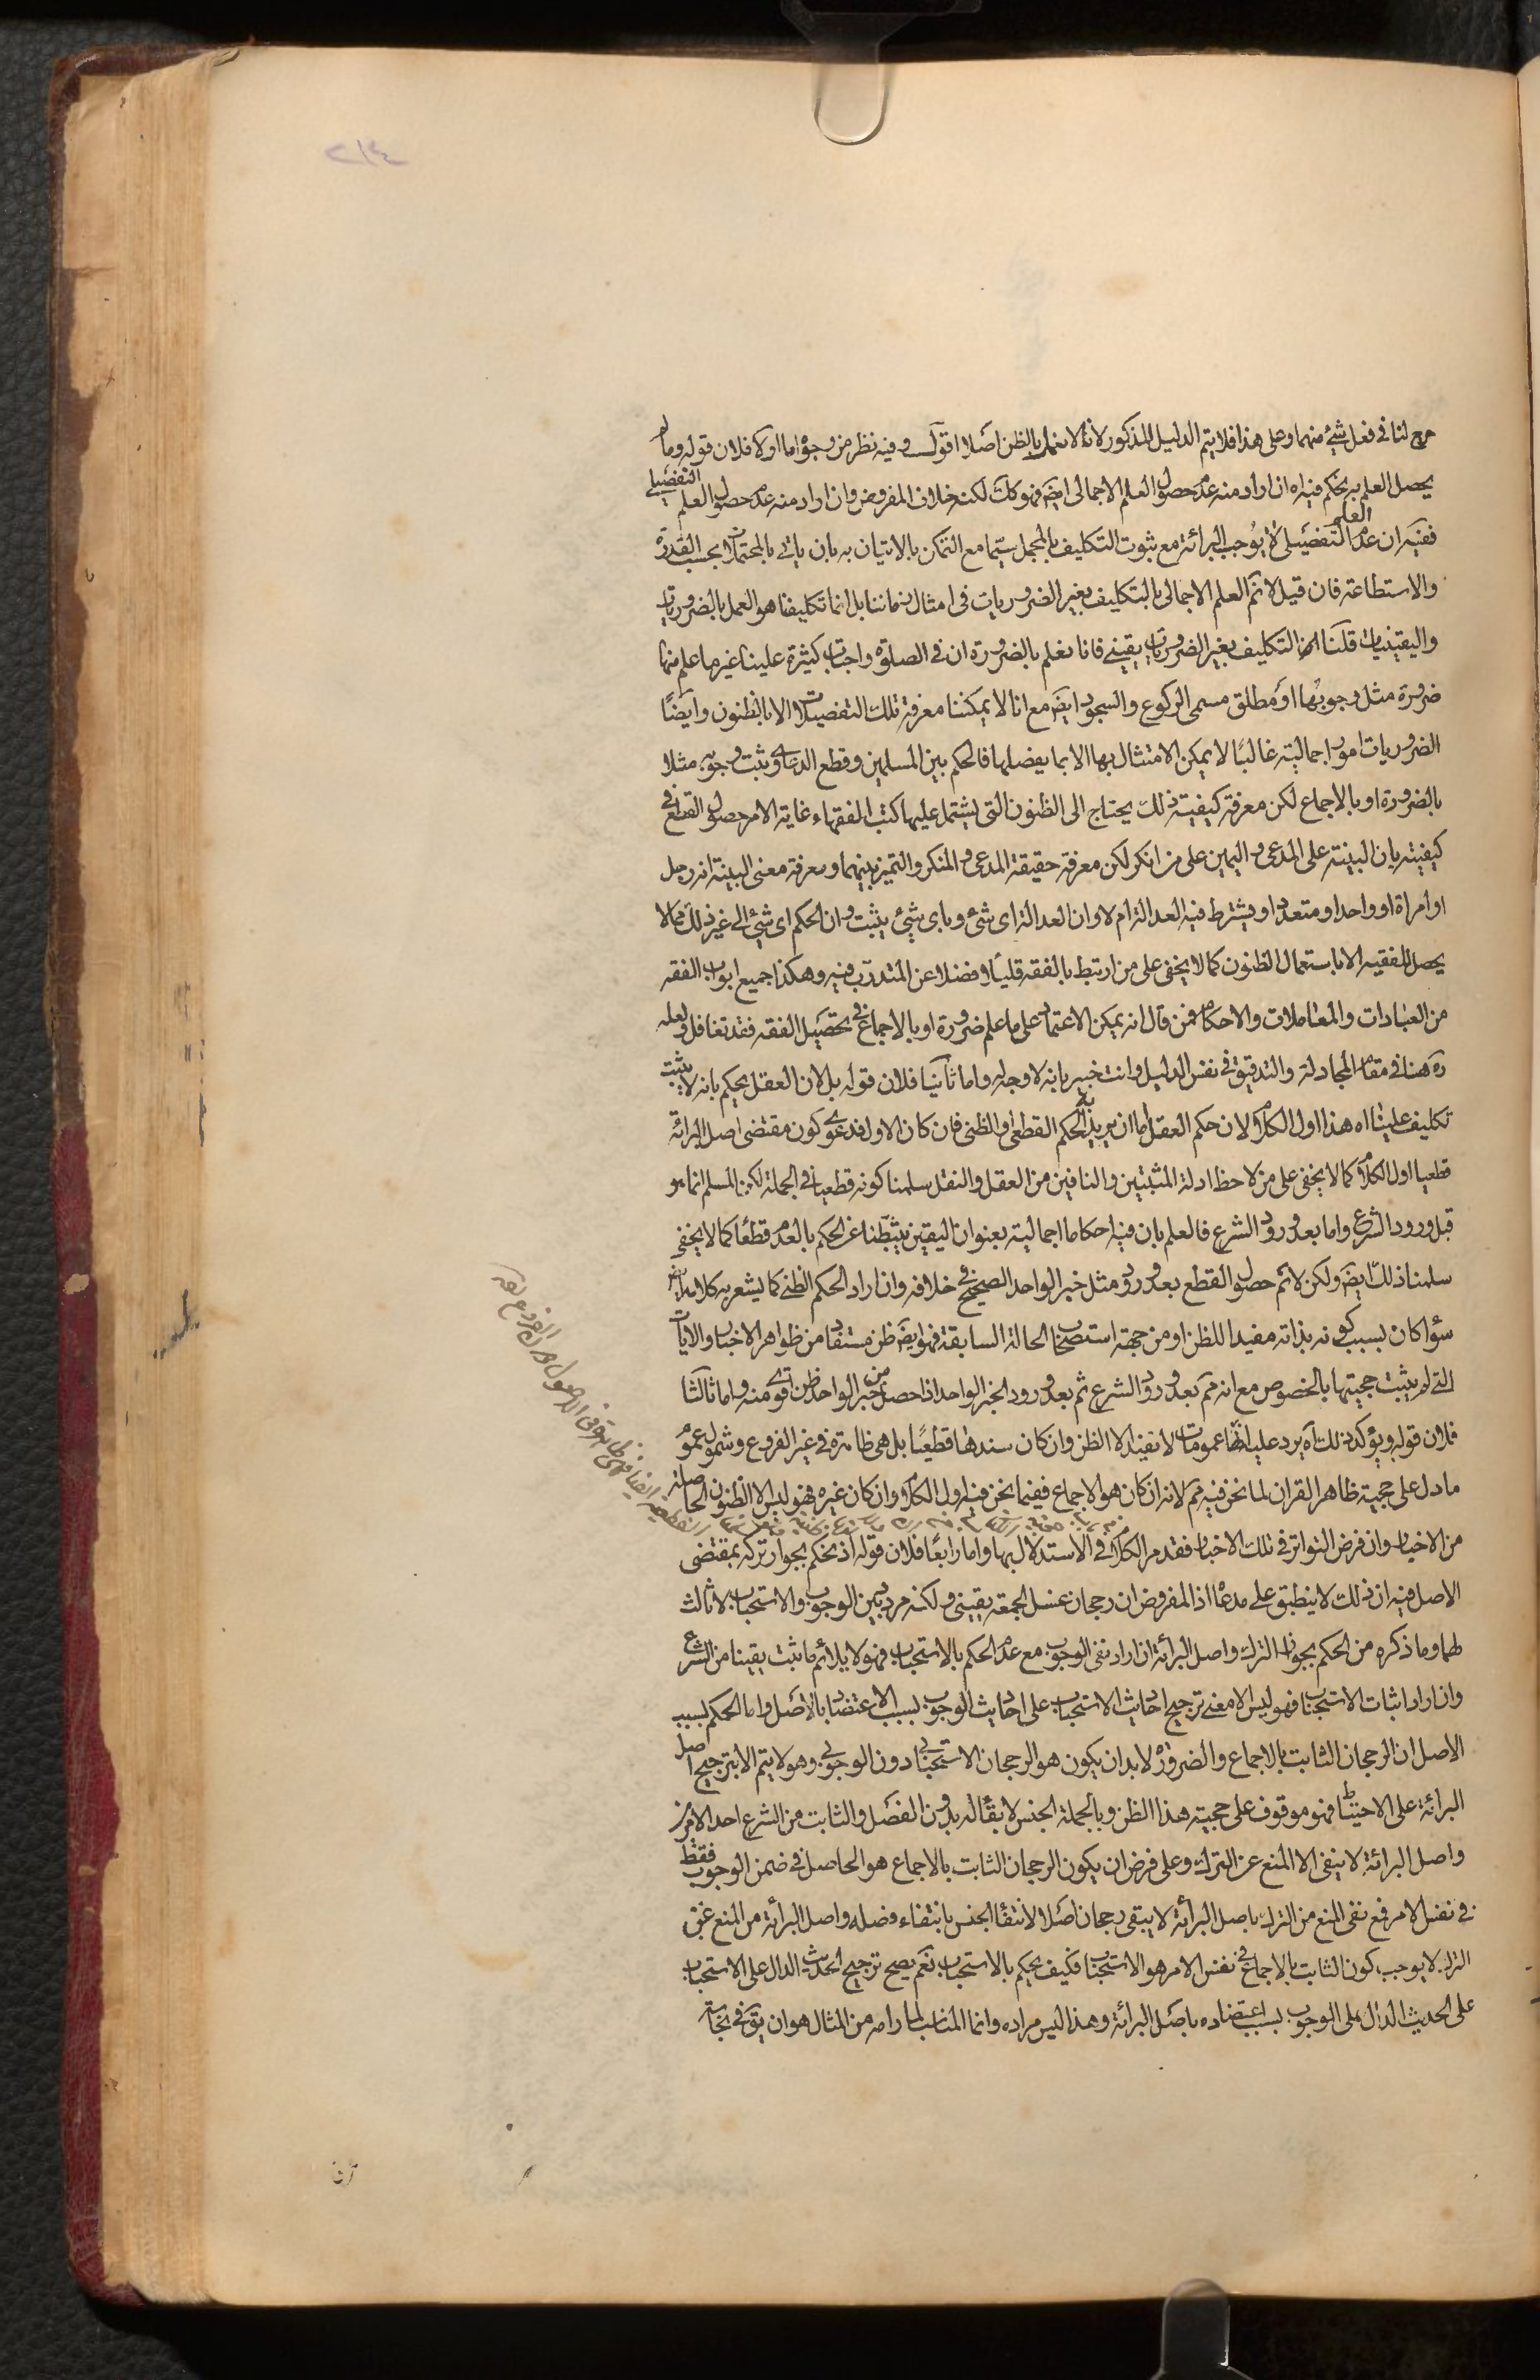 ٢١٤
حرج لنا فى فعل شئ منهما وعلى هذا فلا يتم الدليل المذكور لانا لا نعمل بالظن اصلا اقول وفيه نظر من وجوه اما اولا فلان قوله وما لم
يحصل العلم به نحكم فيه اه ان اراد منه عدم حصول العلم الاجمالى ايضه فهو كك لكنه خلاف المفروض وان اراد منه عدم حصول العلم التفصيلى
ففيه ان عدم العلم التفصيلى لا يوجب البرائة مع ثبوت التكليف بالمجمل سيما مع التمكن بالاتيان به بان ياتى بالمحتملات بحسب القدرة
والاستطاعة فان قيل لا نم العلم الاجمالى بالتكليف بغير الضروريات فى امثال زماننا بل انما تكليفنا هو العمل بالضروريات
واليقينيات قلنا التكليف بغير الضروريات يقينى فانا نعلم بالضرورة ان فى الصلوة واجبات كثيرة علينا غير ما علم منها
ضرورة مثل وجوبها او مطلق مسمى الركوع والسجود ايضه مع انا لا يمكننا معرفة تلك التفصيلات الا بالظنون وايضا
الضروريات امور اجمالية غالبا لا يمكن الامتثال بها الا بما يفصلها فالحكم بين المسلمين وقطع الدعاوى ثبت وجوبه مثلا
بالضرورة او بالاجماع لكن معرفة كيفية ذلك يحتاج الى الظنون التى يشتمل عليها كتب الفقهاء غاية الامر حصول القطع فى
كيفيته بان البينة على المدعى واليمين على من انكر لكن معرفة حقيقة المدعى والمنكر والتميز بينهما ومعرفة معنى البينة انه رجل
او امراة او واحد او متعدد او يشترط فيه العدالة ام لا وان العدالة اى شئ وباى شئ يثبت وان الحكم اى شئ الى غير ذلك مما لا
يحصل للفقيه الا باستعمال الظنون كما لا يخفى على من ارتبط بالفقه قليلا فضلا عن المتدرب فيه وهكذا جميع ابواب الفقه
من العبادات والمعاملات والاحكام فمن قال انه يمكن الاعتماد على ما علم ضرورة او بالاجماع فى تحصيل الفقه فقد تغافل ولعله
ره هنا فى مقام المجادلة والتدقيق فى نفس الدليل وانت خبير بانه لا وجه له واما ثانيا فلان قوله بل لان العقل يحكم بانه لا يثبت
تكليف علينا اه هذا اول الكلام لان حكم العقل اما ان يريد به الحكم القطعى او الظنى فان كان الاول فدعوى كون مقتضى اصل البرائة
قطعيا اول الكلام كما لا يخفى على من لاحظ ادلة المثبتين والنافين من العقل والنقل سلمنا كونه قطعيا فى الجملة لكن المسلم انما هو
قبل ورود الشرع واما بعد ورود الشرع فالعلم بان فيه احكاما اجمالية بعنوان اليقين يثبطنا عن الحكم بالعدم قطعا كما لا يخفى
سلمنا ذلك ايضه ولكن لا نم حصول القطع بعد ورود مثل خبر الواحد الصحيح فى خلافه وان اراد الحكم الظنى كما يشعر به كلامه ايضه
سواء كان بسبب كونه بذاته مفيدا للظن او من جهة استصحاب الحالة السابقة فهو ايضه ظن مستفاد من ظواهر الاخبار والايات
التى لم يثبت حجيتها بالخصوص مع انه مم بعد ورود الشرع ثم بعد ورود الخبر الواحد اذا حصل من خبر الواحد ظن اقوى منه واما ثالثا
فلان قوله ويؤكد ذلك اه يرد عليه انها عمومات لا تفيد الا الظن وان كان سندها قطعيا بل هى ظاهرة فى غير الفروع وشمول عموم
ما دل على حجية ظاهر القران لما نحن فيه مم لانه ان كان هو الاجماع ففيما نحن فيه اول الكلام وان كان غيره فهو ليس الا الظنون الحاصلة
من الاخبار وان فرض التواتر فى تلك الاخبار فقد مر الكلام فى الاستدلال بها واما رابعا فلان قوله اذ نحكم بجواز تركه بمقتضى
الاصل فيه ان ذلك لا ينطبق على مدعاه اذ المفروض ان رجحان غسل الجمعة يقينى ولكنه مردد بين الوجوب والاستحباب لا ثالث
لهما وما ذكره من الحكم بجواز الترك واصل البرائة ان اراد نفى الوجوب مع عدم الحكم بالاستحباب فهو لا يلائم ما ثبت يقينا من الشرع
وان اراد اثبات الاستحباب فهو ليس الا معنى ترجيح احاديث الاستحباب على احاديث الوجوب بسبب الاعتضاد بالاصل واما الحكم بسبب
الاصل ان الرجحان الثابت بالاجماع والضرورة لا بد ان يكون هو الرجحان الاستحبابى دون الوجوبى وهو لا يتم الا بترجيح اصل
البرائة على الاحتياط فهو موقوف على حجية هذا الظن وبالجملة الجنس لا بقاء له بدون الفصل والثابت من الشرع احد الامرين
واصل البرائة لا ينفى الا المنع عن الترك وعلى فرض ان يكون الرجحان الثابت بالاجماع هو الحاصل فى ضمن الوجوب فقط
فى نفس الامر فمع نفى المنع من الترك باصل البرائة لا يبقى رجحان اصلا لانتفاء الجنس بانتفاء فصله واصل البرائة من المنع عن
الترك لا يوجب كون الثابت بالاجماع فى نفس الامر هو الاستحباب فكيف يحكم بالاستحباب نعم يصح ترجيح الحديث الدال على الاستحباب
على الحديث الدال على الوجوب بسبب اعتضاده باصل البرائة وهذا ليس مراده وانما المناسب لما رامه من المثال هو ان يق فى نجاسة